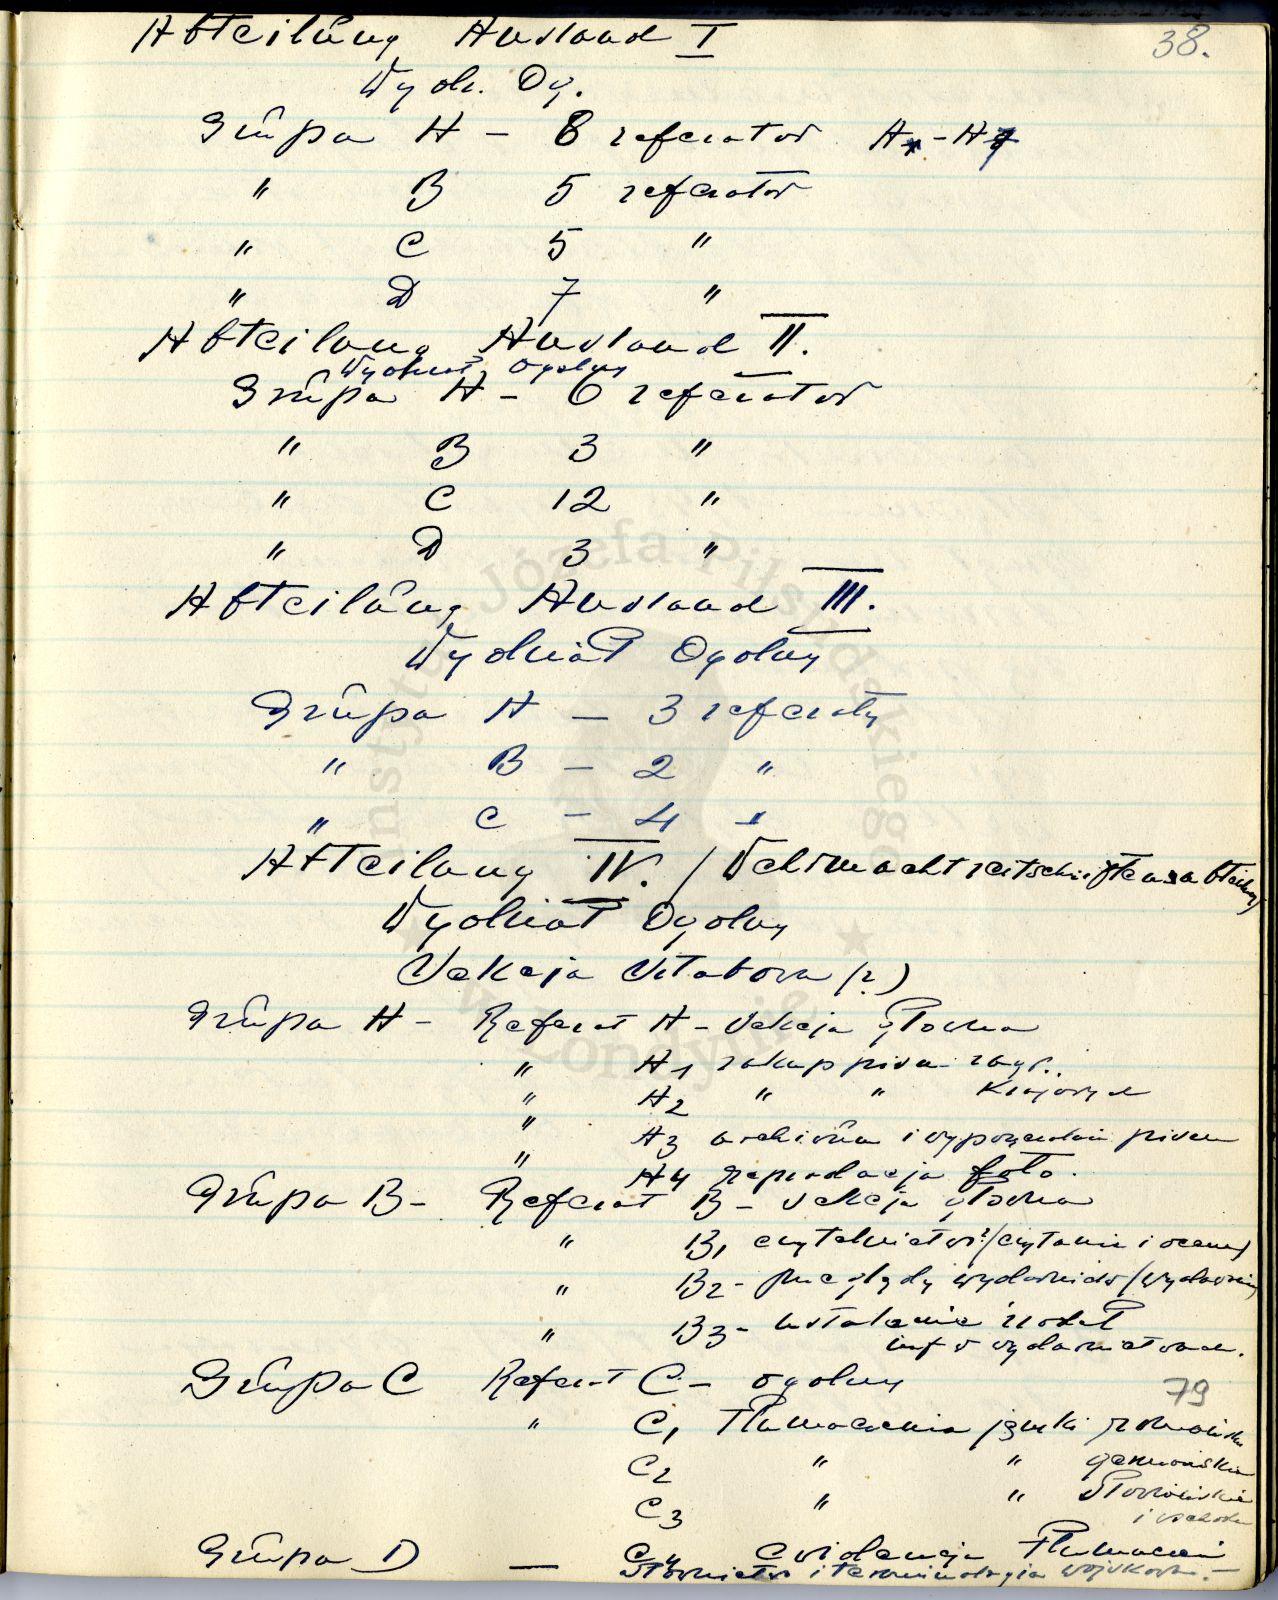 38.
Abteilûng Ausland I
Wydz. Og.
Grûpa A - 8 referatów A1 - A7
" B 5 referatów
" C 5 "
" D 7 "
Abteilung Ausland II.
Wydział Ogólny
Grûpa A - 6 referatów
" B 3 "
" C 12 "
" D 3 "
Abteilûng Ausland III.
Wydział Ogólny
Grûpa A - 3 referaty
" B - 2 "
" C - 4 "
Abteilung IV. / Wehrmachtzeitschriftenabteilung
Wydział Ogólny
Sekcja Sztabowa (?)
Grûpa A - Referat A - Sekcja główna
" A1 zakup pism zagr.
" A2 " " krajowych
" A3 archiwûm i wypożyczalnia pism
" A4 reprodukcja foto.
Grûpa B - Referat B - sekcja główna
" B1 czytelnictwo?/czytanie i oceny/
" B2 - przeglądy
" B3 - ustalanie źródeł
inf o wydawnictwach.
Grûpa C Referat C - ogólny
79
" C1 Tłumaczenia języki romańskie
C2 " " germańskie
C3 " " Słowiańskie
i wschodu
Grûpa D — C4 ewidencja Tłumaczeń
Słownictwo i terminologia wojskowa. -
Instytut Józefa Piłsudskiego
w Londynie